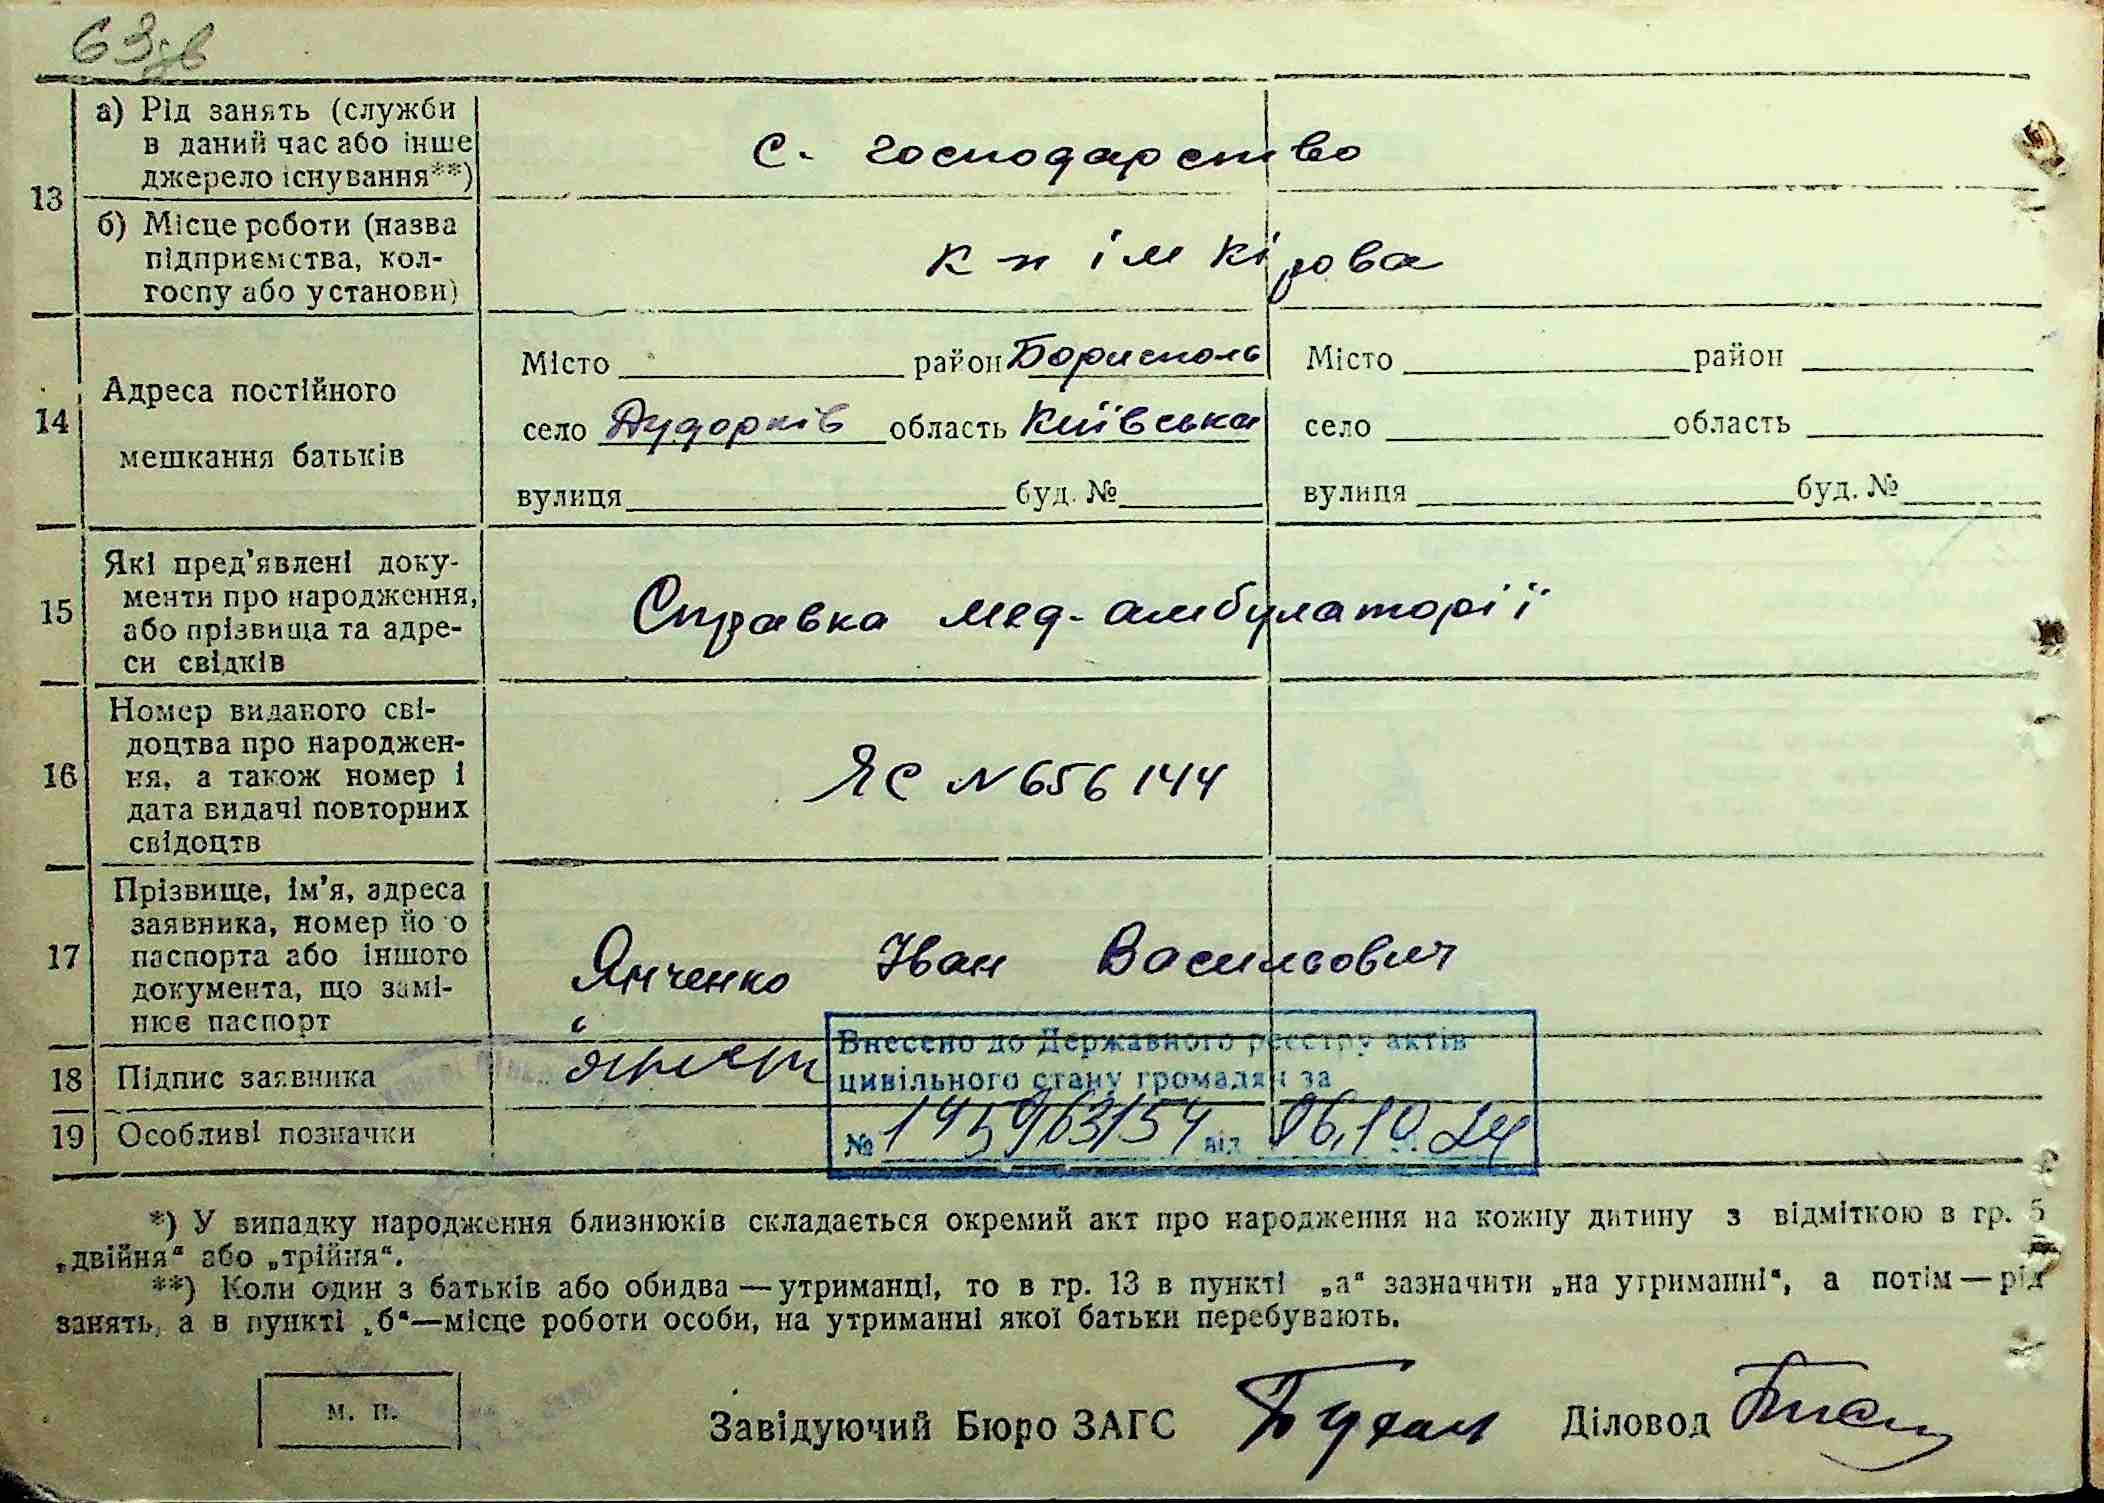 63зв
а) Рід занять (служби
в даний час або інше
джерело існування**)
с. господарство
13
б) Місце роботи (назва
підприємства, кол-
госпу або установи)
к-п ім Кірова
14
Адреса постійного
мешкання батьків
Місто район Бориспол
село Дударків область Київська
вулиця буд. №
Місто район
село область
вулиця буд. №
15
Які пред'явлені доку-
менти про народження,
або прізвища та адре-
си свідків
Справка мед-амбулаторії
16
Номер виданого сві-
доцтва про народжен-
ня, а також номер і
дата видачі повторних
свідоцтв
ЯС № 656144
17
Прізвище, ім'я, адреса
заявника, номер йо о
паспорта або іншого
документа, що замі-
нює паспорт
Янченко Іван Васильович
18 Підпис заявника
19 Особливі позначки
Внесено до Державного реєстру актів
цивільного стану громадян за
№ від 06.10.24
*) У випадку народження близнюків складається окремий акт про народження на кожну дитину з відміткою в гр. 5
„двійня“ або „трійня“.
**) Коли один з батьків або обидва — утриманці, то в гр. 13 в пункті „а“ зазначити „на утриманні“, а потім — рід
занять, а в пункті „б“—місце роботи особи, на утриманні якої батьки перебувають.
м. п.
Завідуючий Бюро ЗАГС Діловод